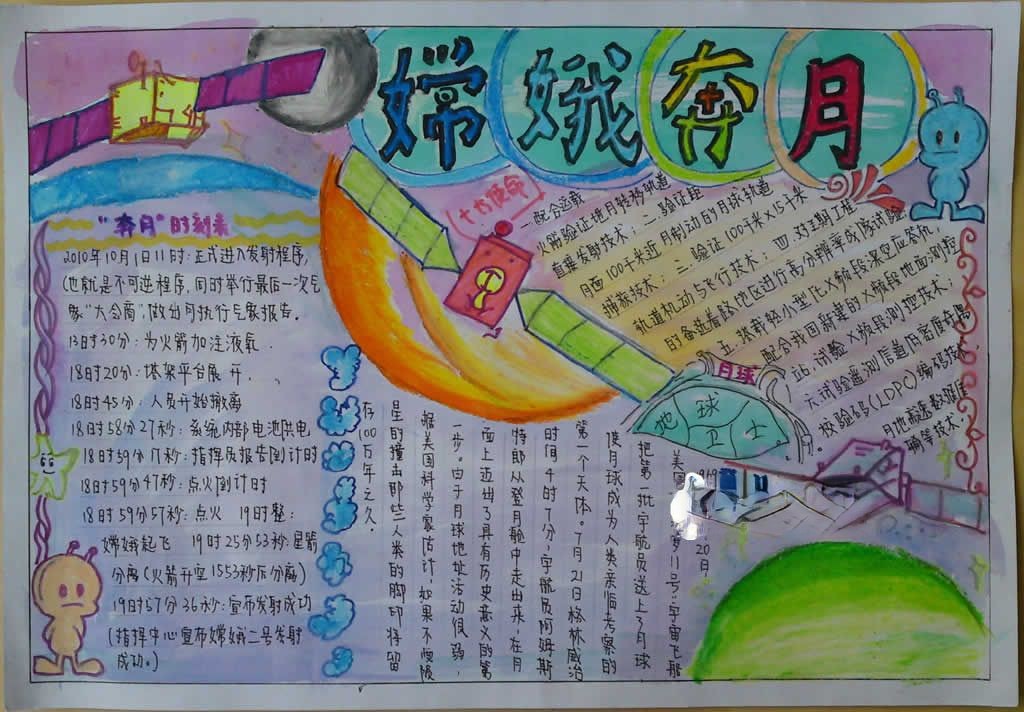 嫦娥奔月
"奔月"时刻表
2010年10月1日11时:正式进入发射程序,
(也就是不可逆程序,同时举行最后一次气
象"大会商",做出月执行气象报告。
13日时30分:为火箭加注液氧.
18时20分:塔架平台展开.
18时45分:人员开始撤离
18时58分27秒:系统内部电池供电
18时59分17秒:指挥员报告倒计时
18时59分47秒:点火倒计时
18时59分57秒:点火 19时整:
嫦娥起飞 19时25分53秒:星箭
分离(火箭升空1553秒后分离)
19时57分36秒:宣布发射成功
(指挥中心宣布嫦娥二号发射
成功。)
十大使命
一.配合运载
火箭验证地月转移轨道
直接发射技术;二.验证距
月面100千米近月制动的月球轨道
捕获技术;三.验证100千米×15千米
轨道机动与飞行技术;四.对二期工程
的备选着陆地区进行高分辨率成像试验
五.搭载轻小型化X频段深空应答机,
配合我国新建的X频段地面测控
站,试验X频段测控技术;
月球
地球卫士
美国 11号:宇宙飞船
把第一批宇航员送上了月球
使月球成为人类亲临考察的
第一个天体。7月21日格林威治
时间4时7分,宇航员阿姆斯
特郎从登月舱中走出来,在月
面上迈出了具有历史意义的第
一步。由于月球地址活动很弱,
据美国科学家估计,如果不
星的撞击那些人类的脚印将留
存100万年之久.